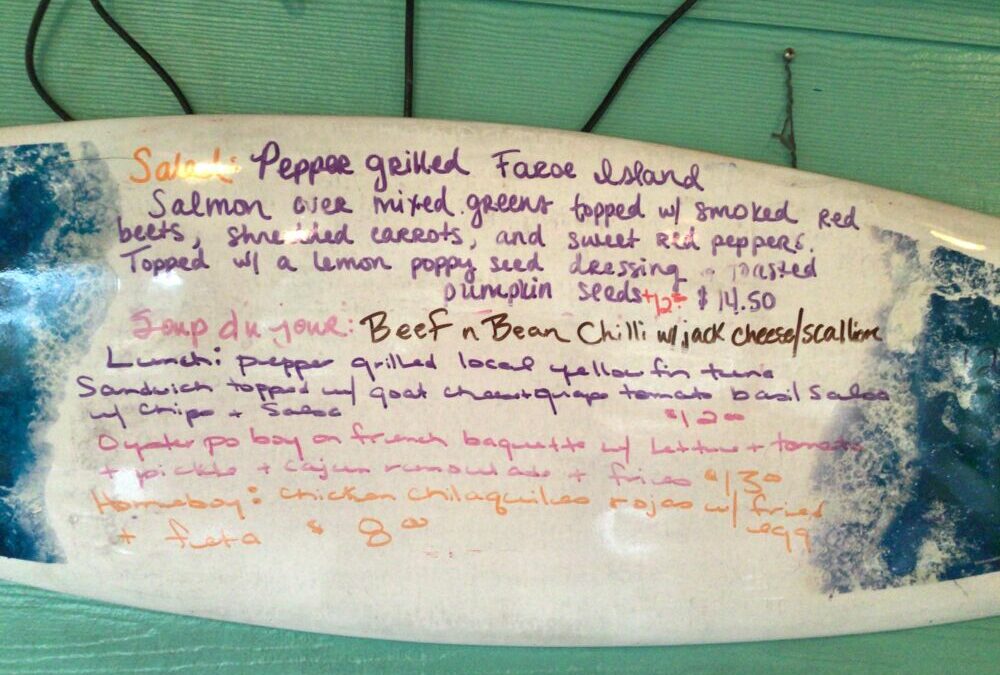 Salad: Pepper grilled Faroe Island
Salmon over mixed greens topped w/ smoked red
beets, shredded carrots, and sweet red peppers.
Topped w/ a lemon poppy seed dressing + toasted
pumpkin seeds $14.50
Soup du jour: Beef n Bean Chilli w/ jack cheese/scallions
Lunch: pepper grilled local yellow fin tuna
Sandwich topped w/ goat cheese + grape tomato basil salsa
w/ chips + salsa $12.00
Oyster po boy on french baguette w/ lettuce + tomato
+ pickle + cajun remoulade + fries $13
Homeboy: chicken chilaquiles rojas w/ fried egg
+ feta $8.00